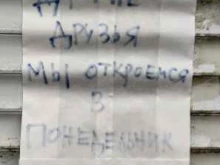 ДРУЗЬЯ
МЫ ОТКРОЕМСЯ
В
ПОНЕДЕЛЬНИК